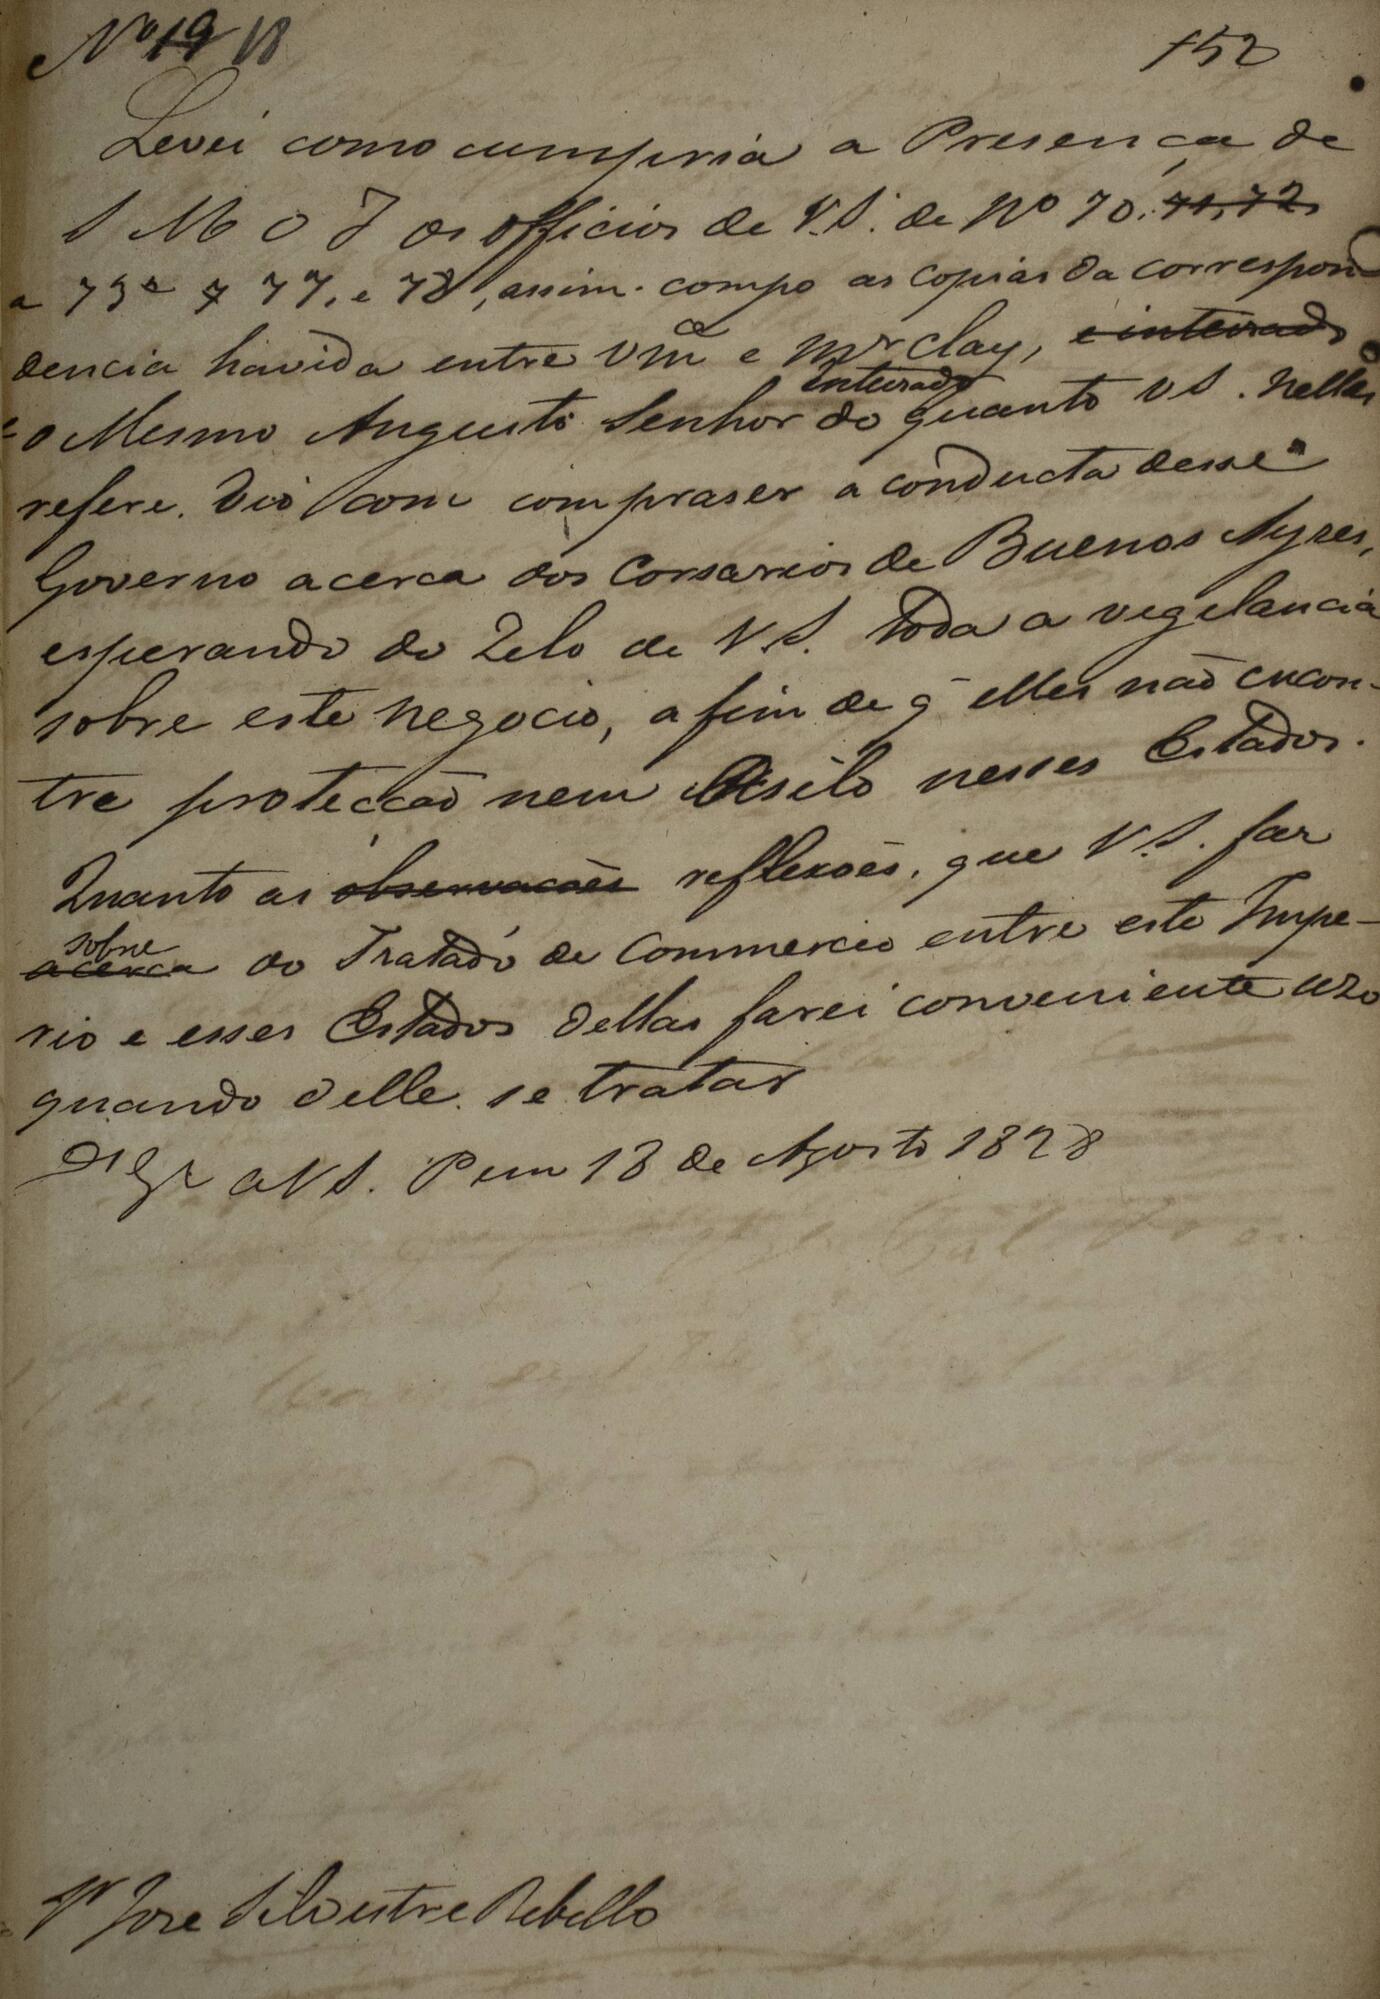 Nº 19 18
152
Levei como cumpria a Presença de
S M O I os officios de V.S. de Nº 70, 71, 72,
a 73ª 7 77, e 78, assim compo as copias da correspon
dencia havida entre Vmce e Mr Clay, e inteirado
e o Mesmo Augusto Senhor inteirado do quanto VS. nelles
refere. Vio com comprazer a conducta desse
Governo acerca dos Corsarios de Buenos Ayres,
esperando do Zelo de V.S. toda a vegilancia
sobre este negocio, a fim de q̃ elles não encon-
tre protecção nem Asilo nesses Estados.
Quanto as observacoẽs reflexoẽs, que V.S. faz
acerca sobre do Tratado de Commercio entre este Impe-
rio e esses Estados dellas farei conveniente uzo
quando delle se tratar
Ds Ge a VS. P em 13 de Agosto 1828
Sr Jose Silvestre Rebello